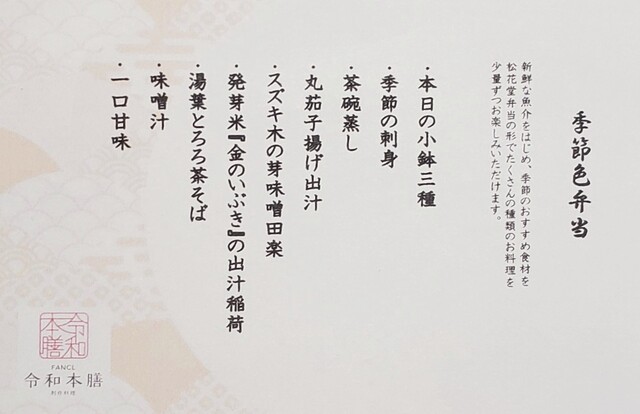 季節色弁当
新鮮な魚介をはじめ、季節のおすすめ食材を
松花堂弁当の形でたくさんの種類のお料理を
少量ずつお楽しみいただけます。
・本日の小鉢三種
・季節の刺身
・茶碗蒸し
・丸茄子揚げ出汁
・スズキ木の芽味噌田楽
・発芽米『金のいぶき』の出汁稲荷
・湯葉とろろ茶そば
・味噌汁
・一口甘味
令和
本膳
FANCL
令和本膳
創作料理